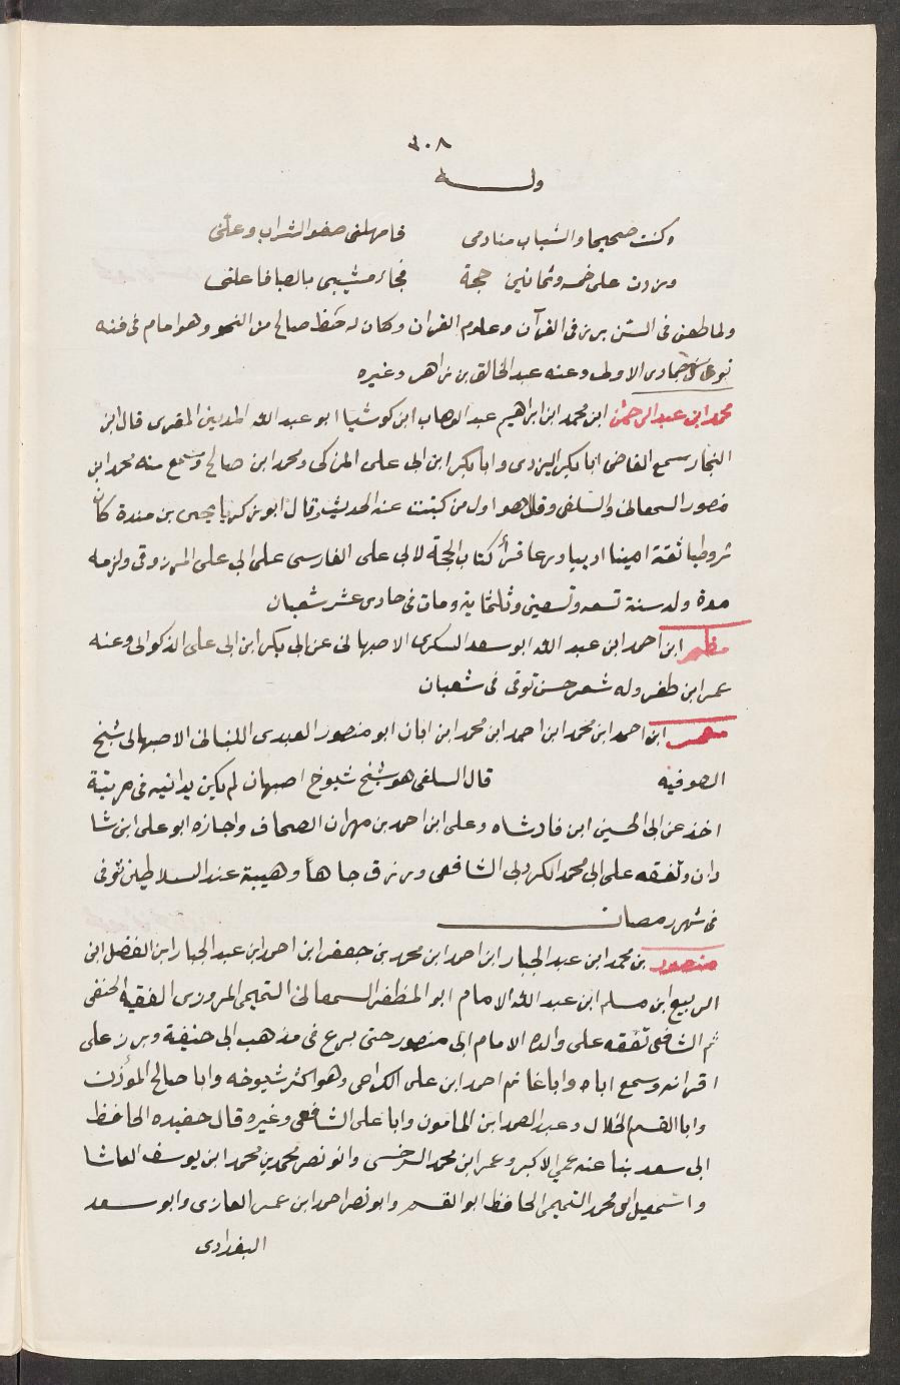 ٣٠٨
وله
وكنت صحيحا والشباب منادمى فامهلنى صفو الشراب وعلنى
وزدت على خمس وثمانين حجة فجاء مشيبى بالصبا فاعلنى
ولما طعن فى السن برز فى القرآن وعلوم القران وكان له حظ صالح من النحو وهو امام فى فنه
توفى جمادى الاولى وعنه عبد الخالق بن زاهر وغيره
محمد ابن عبد الرحمن ابن محمد ابن ابراهيم عبد الوهاب ابن كوشيا ابو عبد الله المدينى المقرى قال ابن
النجار سمع القاضى ابا بكر اليزدى وابا بكر ابن ابى على المزكى ومحمد ابن صالح وسمع منه محمد ابن
منصور السمعانى والسلفى وقال هو اول من كتبت عنه الحديث وقال ابو زكريا يحيى بن مندة كان
شروطيا ثقة امينا اديبا ورعا قرأ كتاب الحجة لابى على الفارسى على ابى على المرزوقى ولزمه
مدة ولد سنة تسعه وتسعين وثلثماية ومات فى حادى عشر شعبان
مظهر ابن احمد ابن عبد الله ابو سعد السكرى الاصبهانى عن ابى بكر ابن ابى على الذكوانى وعنه
عمر ابن ظفر وله شعر حسن توفى فى شعبان
معمر ابن احمد ابن محمد ابن احمد ابن محمد ابن ابان ابو منصور العبدى اللنبانى الاصبهانى شيخ
الصوفيه قال السلفى هو شيخ شيوخ اصبهان لم يكن يدانيه فى مرتبة
اخذ عن ابى الحسين ابن فادشاه وعلى ابن احمد بن مهران الصحاف واجازه ابو على ابن شا
ذان وتفقه على ابى محمد الكرونى الشافعى ورزق جاها وهيبة عند السلاطين توفى
فى شهر رمضان
منصور بن محمد ابن عبد الجبار ابن احمد ابن محمد بن جعفر ابن احمد ابن عبد الجبار ابن الفضل ابن
الربيع ابن مسلم ابن عبد الله الامام ابو المظفر السمعانى التميمى المروزى الفقيه الحنفى
ثم الشافعى تفقه على والده الامام ابى منصور حتى برع فى مذهب ابى حنيفة وبرز على
اقرانه وسمع اباه وابا غانم احمد ابن على الكراعى وهو اكثر شيوخه وابا صالح الموذن
وابا القسم الخلال وعبد الصمد ابن المامون وابا على الشافعى وغيره قال حفيده الحافظ
ابى سعد بنا عنه عمى الاكبر وعمر ابن محمد السرخسى وابو نصر محمد بن محمد ابن يوسف الفاشا
واسمعيل ابن محمد التميمى الحافظ ابو القسم وابو نصر احمد ابن عمر الغازى وابو سعد
البغدادى